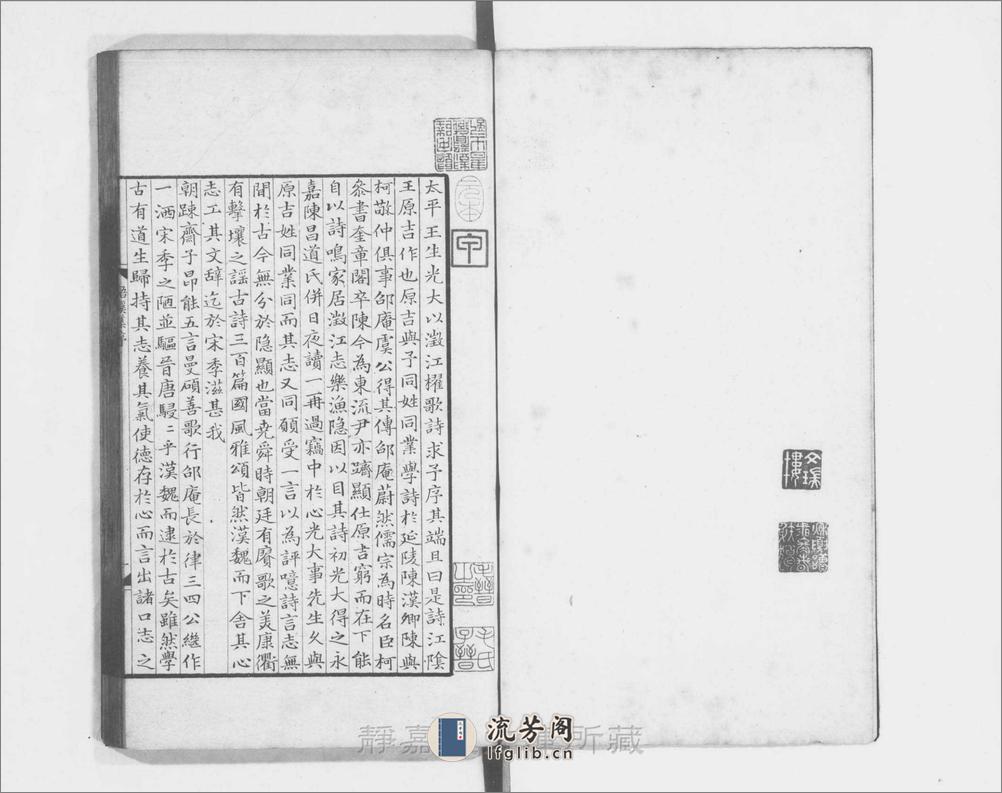 太平王生光大以澂江櫂歌詩求予序其端且曰是詩江陰
王原吉作也原吉與予同姓同業學詩於延陵陳漢卿陳與
柯敬仲俱事邵庵虞公得其傳邵庵蔚然儒宗為時名臣柯
叅書奎章閣卒陳今為東流尹亦躋顯仕原吉窮而在下能
自以詩鳴家居澂江志樂漁隐因以目其詩初光大得之永
嘉陳昌道氏併日夜讀一再過竊中於心光大事先生久與
原吉姓同業同而其志又同願受一言以為評噫詩言志無
間於古今無分於隐顯也當堯舜時朝廷有賡歌之美康衢
有擊壤之謡古詩三百篇國風雅頌皆然漢魏而下舎其心
志工其文辞迄於宋季滋甚我
朝踈齋子昂能五言曼碩善歌行邵庵長於律三四公繼作
一洒宋季之陋並驅晉唐駸〻乎漢魏而逮於古矣雖然學
古有道生歸持其志養其氣使德存於心而言出諸口志之
元本
毛晉
之印
毛氏
子晉
文瑞
樓
靜嘉
所藏
流芳阁
lfglib.cn